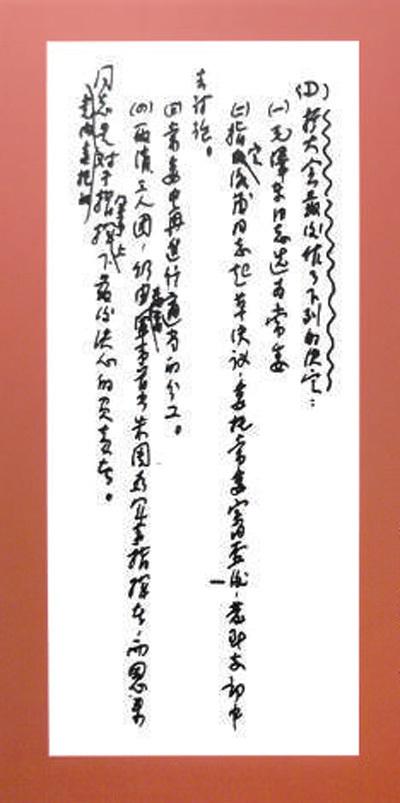 (D)扩大会最后作了下列的决定:
(一)毛泽东同志选为常委
(二)指定洛甫同志起草决议,委托常委审查后,发到支部中
去讨论。
(三)常委中再进行适当的分工。
(四)取消三人团,仍由最高军事首长朱周为军事指挥者,而恩来
同志是党内委托的对于指挥军事上下最后决心的负责者。